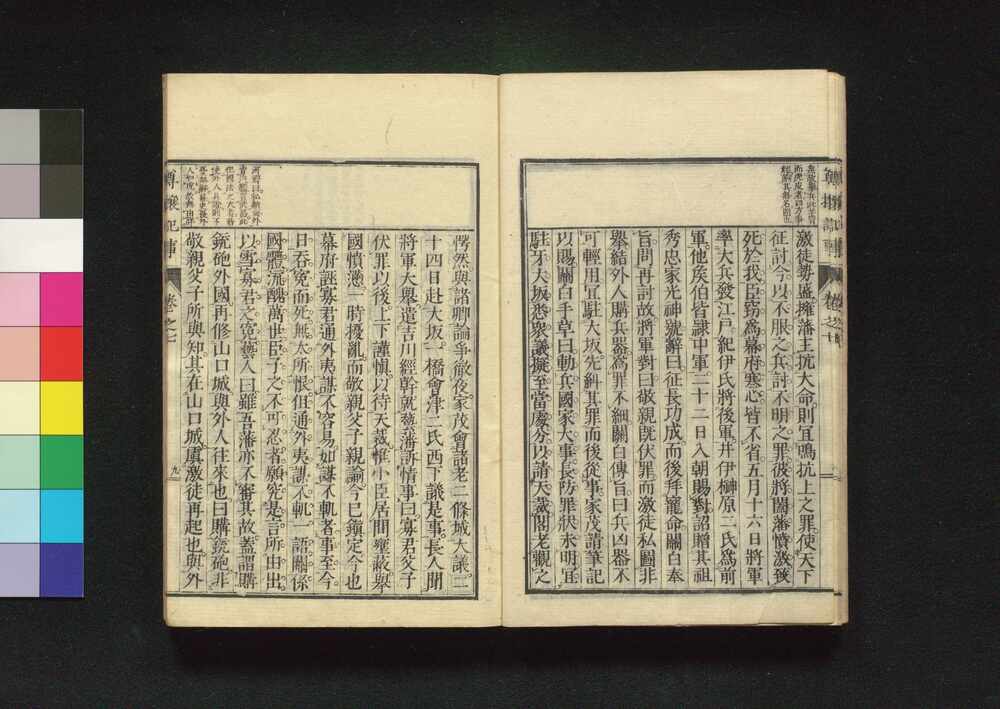 激徒勢盛擁藩主抗大命則宜鳴抗上之罪使天下
征討今以不服之兵討不明之罪彼將闔藩憤激致
死於我臣竊爲幕府寒心皆不省五月十六日將軍
率大兵發江戸紀伊氏將後軍井伊榊原二氏爲前
軍他侯伯皆隷中軍二十二日入朝賜對詔贈其祖
秀忠家光神號辭曰征長功成而後拜寵命關白奉
旨問再討故將軍對曰敬親既伏罪而激徒私圖非
擧結外人購兵器爲罪不細關白傳旨曰兵凶器不
可輕用宜駐大坂先糾其罪而後從事家茂請筆記
以賜關白手草曰動兵國家大事長防罪狀未明宜
駐牙大坂悉衆議擬至當處分以請天裁閣老觀之
愕然與諸卿論爭徹夜家茂會諸老二條城大議二
十四日赴大坂一橋會津二氏西下議是事長人聞
將軍大擧遣吉川經幹就藝藩訴情事曰寡君父子
伏罪以後上下謹愼以待天裁惟小臣居間壅蔽擧
國憤懣一時擾亂而敬親父子親諭今已鎭定今也
幕府誣寡君通外夷謀不容易如謀不軌者事至今
日呑寃而死無太所恨但通外夷謀不軌一語關係
國體流醜萬世臣子之不可忍者願先是言所由出
以雪寡君之寃藝人曰雖吾藩亦不審其故蓋謂購
銃砲外國再修山口城與外人往來也曰購銃砲非
敬親父子所與知其在山口城虞激徒再起也與外
尊攘紀事
卷之七
九